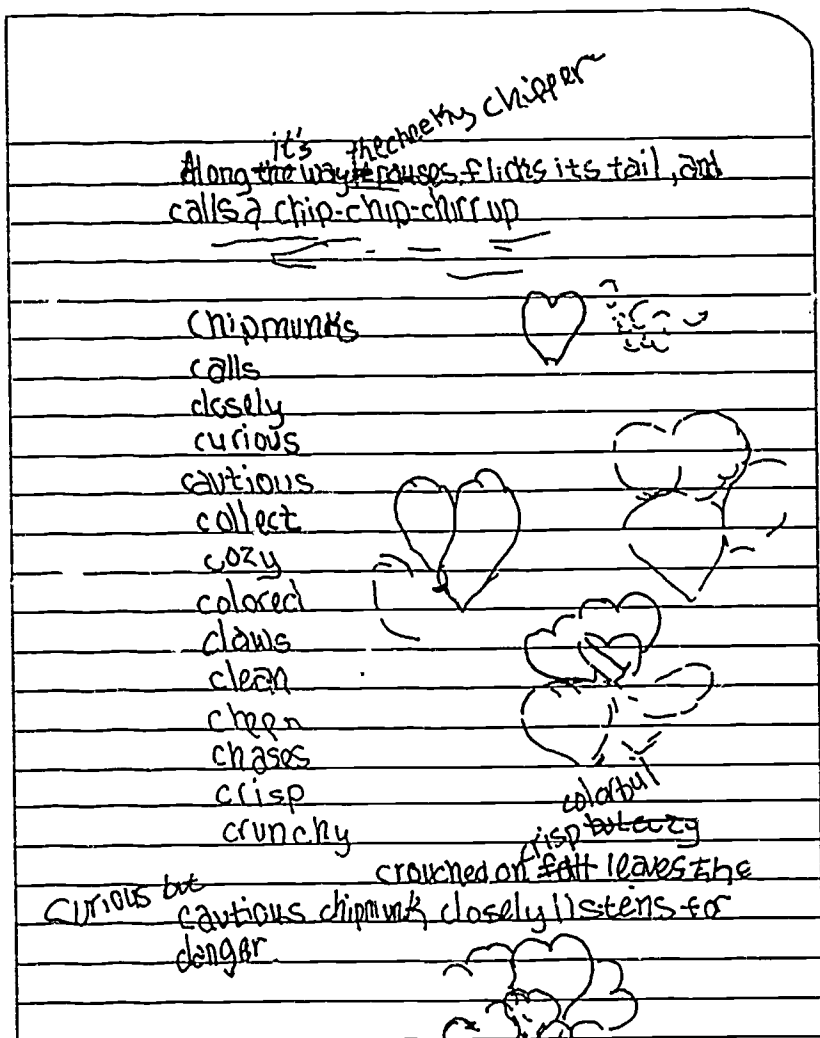 it's the cheeky chipper
Along the way it pauses, flicks its tail, and
calls a chip-chip-chirrup
chipmunks
calls
closely
curious
cautious
collect
cozy
colored
claws
clean
chases
crisp
crunchy
colorful
crisp but cozy
crouched on fall leaves the
curious but
cautious chipmunk closely listens for
danger